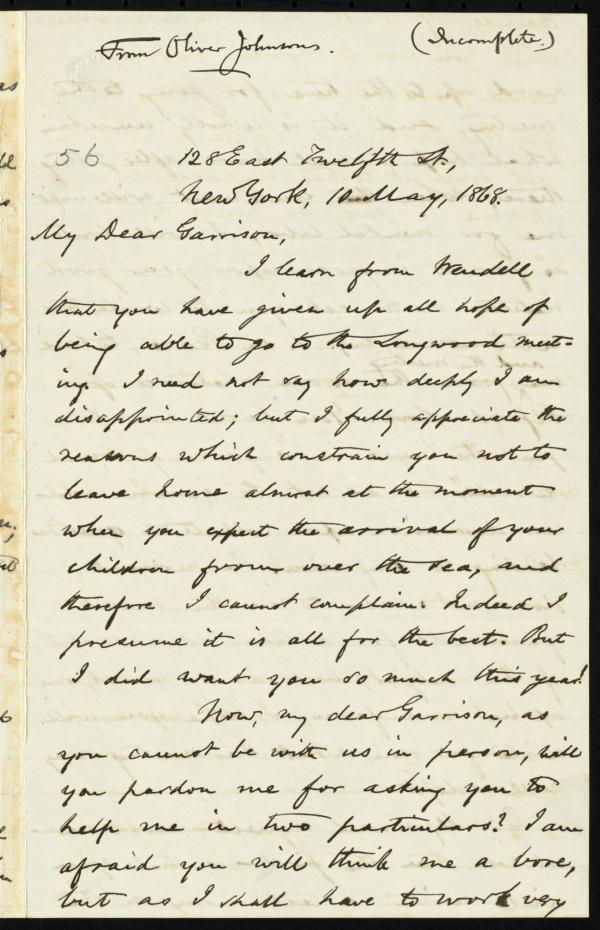 From Oliver Johnson.
(Incomplete.)
56
128 East Twelfth St.,
New York, 10 May, 1868.
My Dear Garrison,
I learn from Wendell
that you have given up all hope of
being able to go to the Longwood meet-
ing. I need not say how deeply I am
disappointed; but I fully appreciate the
reasons which constrain you not to
leave home almost at the moment
when you expect the arrival of your
children from over the sea, and
therefore I cannot complain. Indeed I
presume it is all for the best. But
I did want you so much this year!
Now, my dear Garrison, as
you cannot be with us in person, will
you pardon me for asking you to
help me in two particulars? I am
afraid you will think me a bore,
but as I shall have to work very